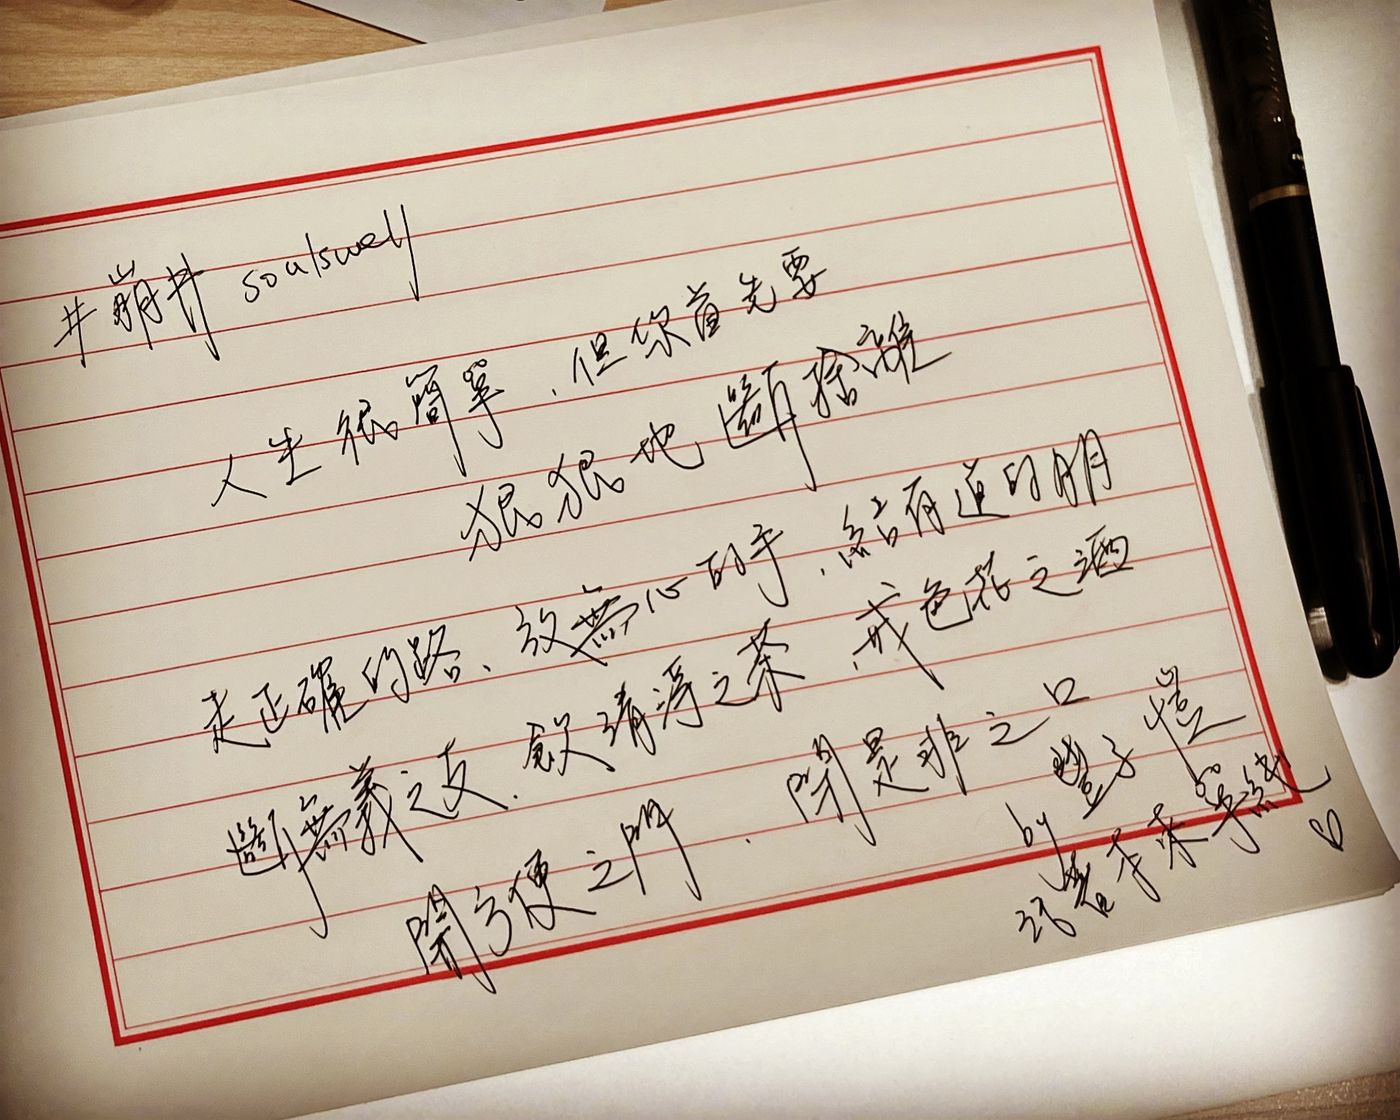 #崩井 soulswell
人生很簡單，但你首先要
狠狠地斷捨離
走正確的路、放無心的手，結有道的朋
斷無義之友，飲清淨之茶，戒色花之酒
開方便之門，閉是非之口
by 豐子愷
活著本來單純
♡